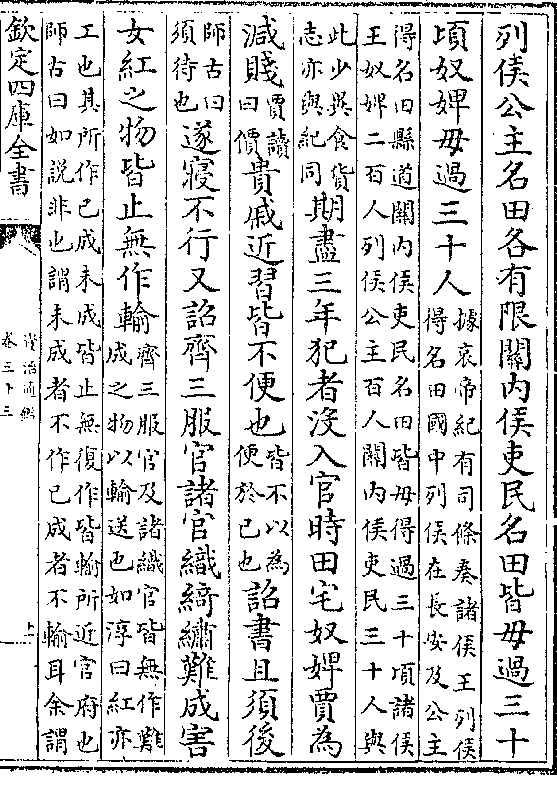 列侯公主名田各有限關内侯吏民名田皆毋過三十
頃奴婢毋過三十人據哀帝紀有司條奏諸侯王列侯
得名田國中列侯在長安及公主
得名田縣道關内侯吏民名田皆毋得過三十頃諸侯
王奴婢二百人列侯公主百人關内侯吏民三十人與
此少異食貨
志亦與紀同期盡三年犯者沒入官時田宅奴婢賈為
減賤賈讀
曰價貴戚近習皆不便也皆不以為
便於已也詔書且須後
師古曰
須待也遂寢不行又詔齊三服官諸官織綺繡難成害
女紅之物皆止無作輸齊三服官及諸織官皆無作難
成之物以輸送也如淳曰紅亦
工也其所作已成未成皆止無復作皆輸所近官府也
師古曰如説非也謂未成者不作已成者不輸耳余謂
欽定四庫全書
資治通鑑
卷三十三
上